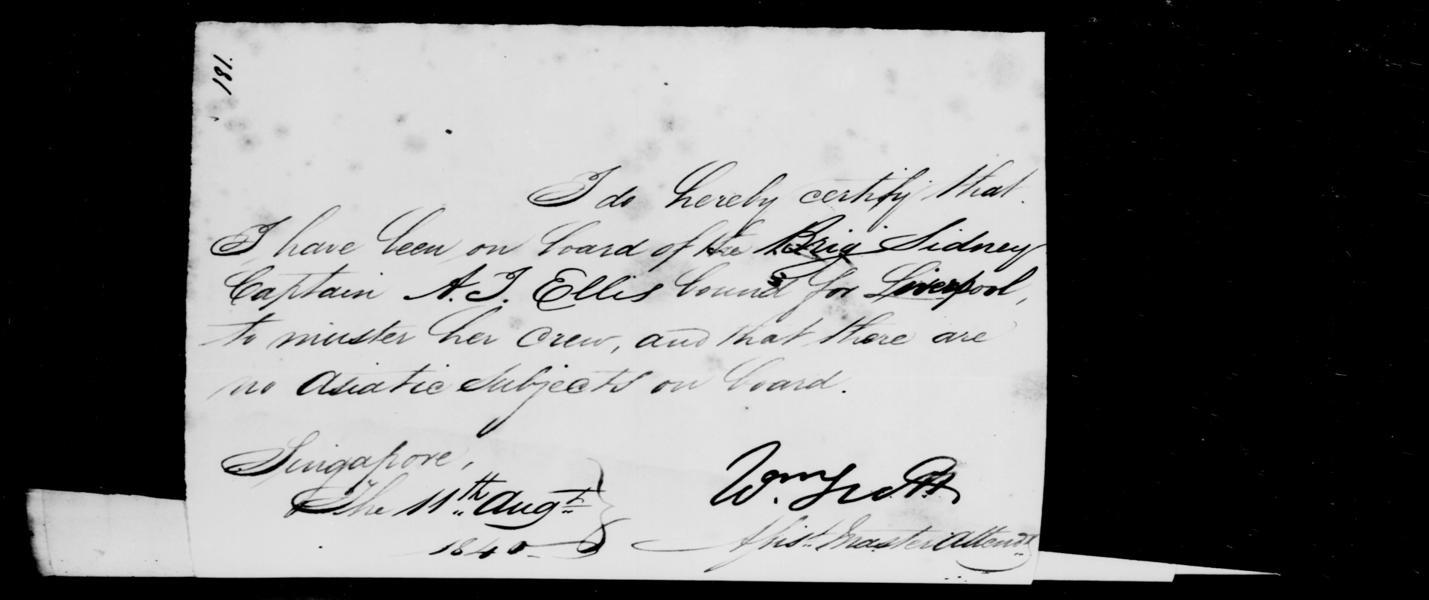 181.
I do hereby certify that
I have been on board of the Brig Sidney
Captain A. J. Ellis bound for Liverpool,
to muster her crew, and that there are
no Asiatic Subjects on board.
Singapore,
The 11th Augt
1840
Wm Scott
Assist. Master Attendt